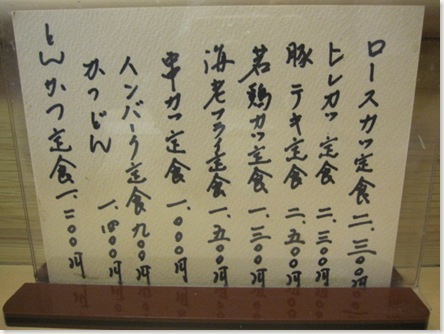 ロースカツ定食 二、三〇〇円
ヒレカツ定食 二、三〇〇円
豚テキ定食 二、五〇〇円
若鶏カツ定食 一、三〇〇円
海老フライ定食 一、五〇〇円
串カツ定食 一、〇〇〇円
ハンバーク定食 九〇〇円
かつどん 一、四〇〇円
とんかつ定食 一、二〇〇円